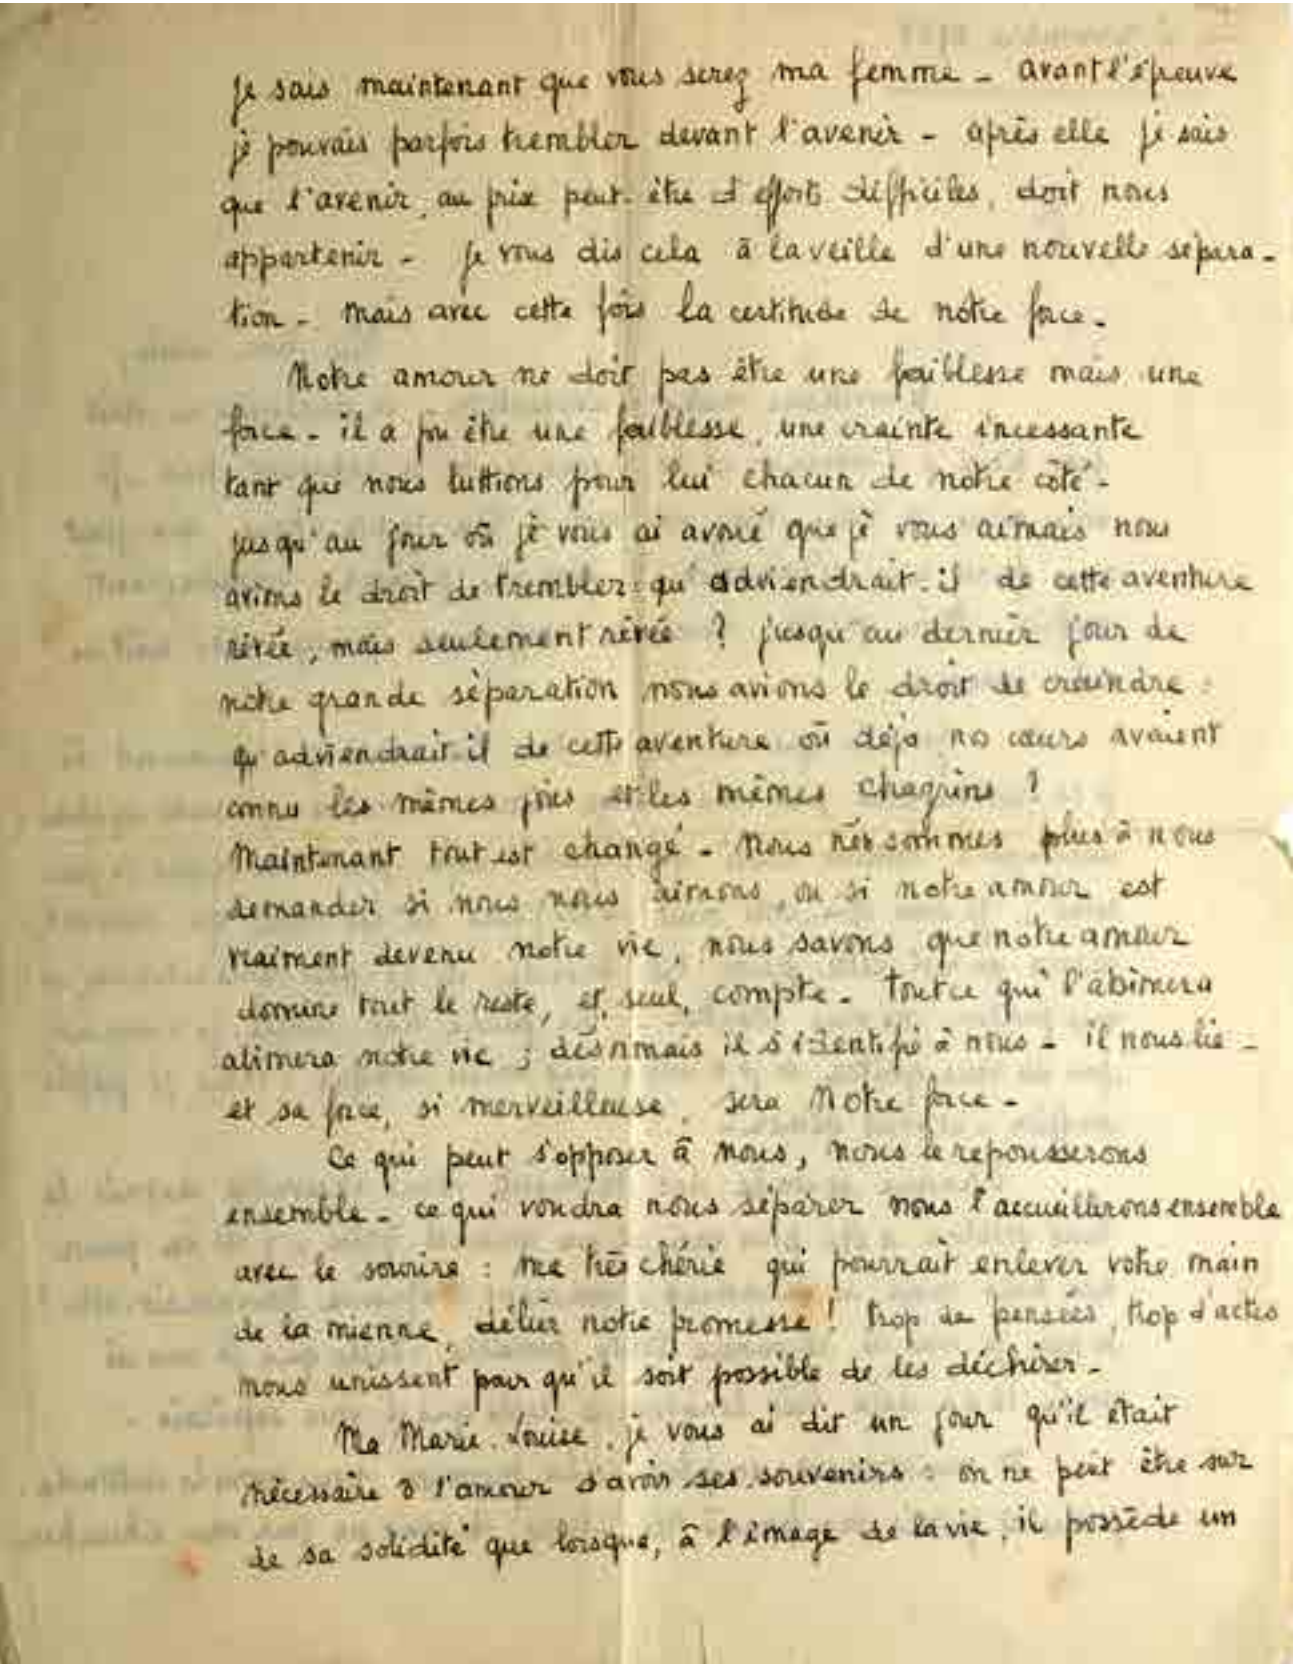 je sais maintenant que vous serez ma femme - avant l'épreuve
je pouvais parfois trembler devant l'avenir - après elle je sais
que l'avenir, au prix peut-être d'efforts difficiles, doit nous
appartenir - je vous dis cela à la veille d'une nouvelle sépara-
tion - mais avec cette fois la certitude de notre force -
Notre amour ne doit pas être une faiblesse mais une
force - il a pu être une faiblesse, une crainte incessante
tant que nous luttions pour lui chacun de notre côté -
jusqu'au jour où je vous ai avoué que je vous aimais nous
avions le droit de trembler : qu'adviendrait-il de cette aventure
rêvée, mais seulement rêvée ? jusqu'au dernier jour de
notre grande séparation nous avions le droit de craindre :
qu'adviendrait-il de cette aventure où déjà nos cœurs avaient
connu les mêmes joies et les mêmes chagrins ?
Maintenant tout est changé - Nous n'en sommes plus à nous
demander si nous nous aimons, ou si notre amour est
vraiment devenu notre vie, nous savons que notre amour
domine tout le reste, et, seul, compte - tout ce qui l'abîmera
abimera notre vie ; désormais il s'identifie à nous - il nous lie -
et sa force, si merveilleuse, sera Notre force -
Ce qui peut s'opposer à nous, nous le repousserons
ensemble - ce qui voudra nous séparer nous l'accueillerons ensemble
avec le sourire : ma très chérie qui pourrait enlever votre main
de la mienne, délier notre promesse ! trop de pensées, trop d'actes
nous unissent pour qu'il soit possible de les déchirer -
Ma Marie-Louise, je vous ai dit un jour qu'il était
nécessaire à l'amour d'avoir ses souvenirs : on ne peut être sur
de sa solidité que lorsque, à l'image de la vie, il possède un